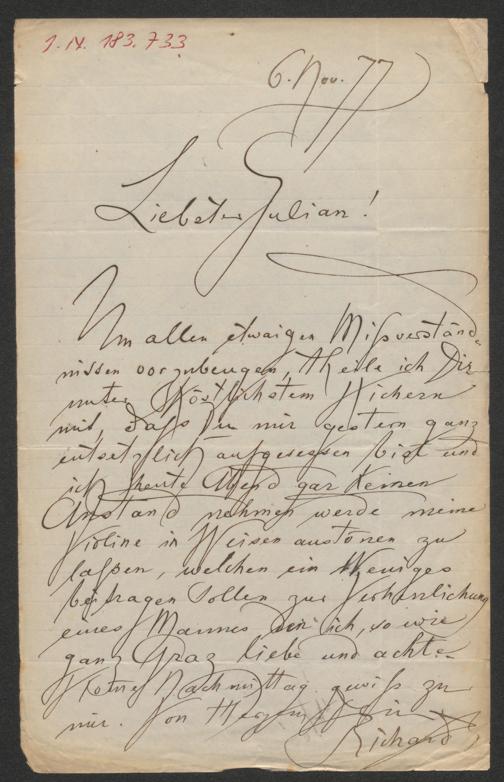 I. N. 183.733
6. Nov. 77
Liebster Julian!
Um allen etwaigen Mißverständ-
nissen vorzubeugen, theile ich Dir
unter köstlichstem Kichern
mit, daß Du mir gestern ganz
entsetzlich aufgesessen bist und
ich heute Abend gar keinen
Anstand nehmen werde meine
Violine in Weisen austönen zu
laßen, welchen ein Weniges
beitragen sollen zur Verherrlichung
eines Mannes den ich, so wie
ganz Graz liebe und achte.
Nachmittag gewiß zu
mir. Von Herzen Dein
Richard